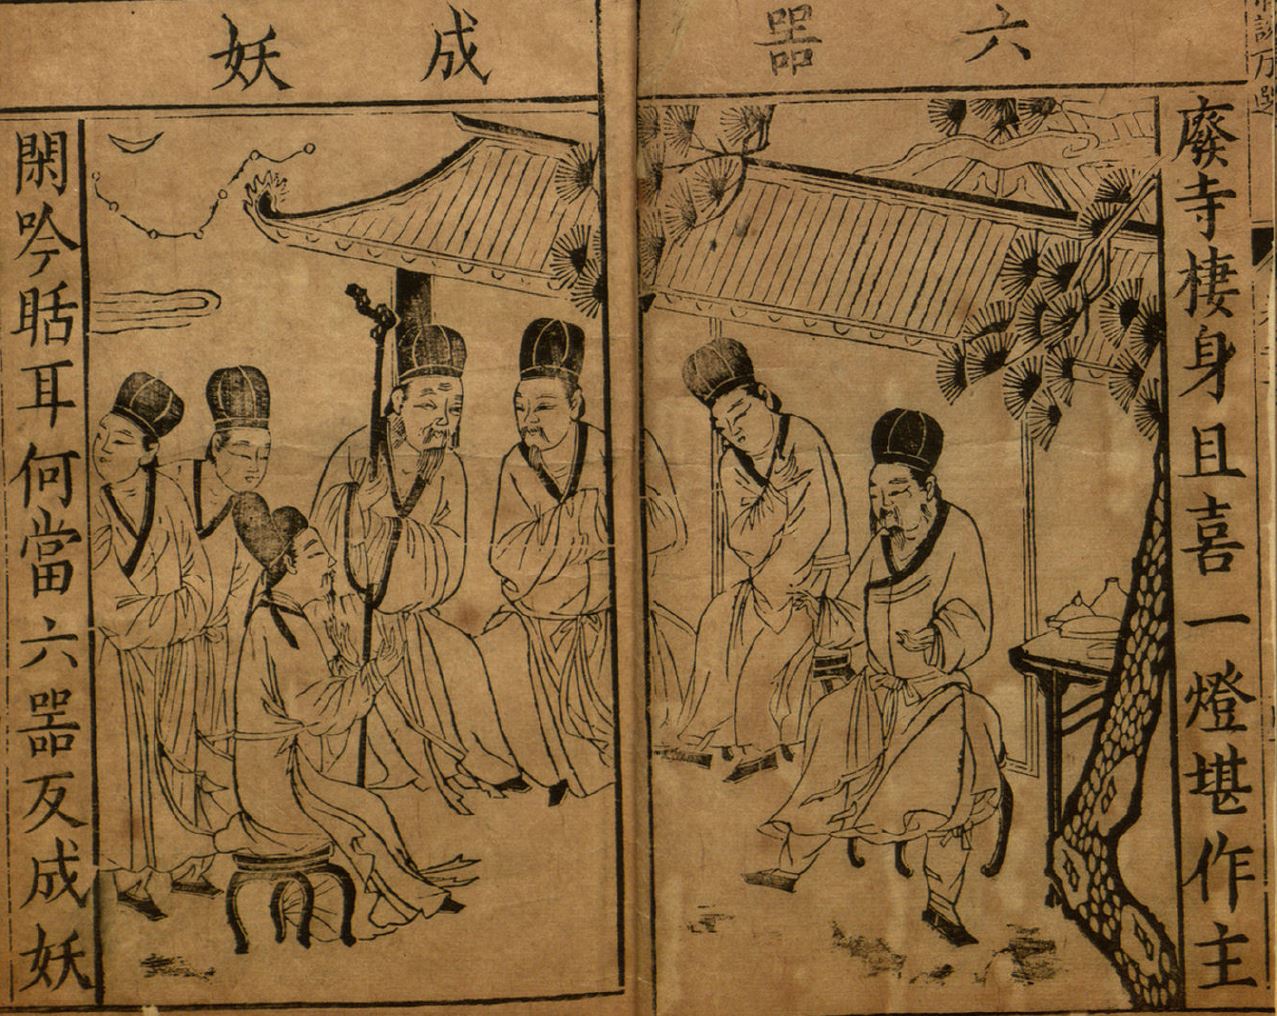 六噐成妖
談万選
廢寺棲身且喜一燈堪作主
閑吟聒耳何當六噐反成妖